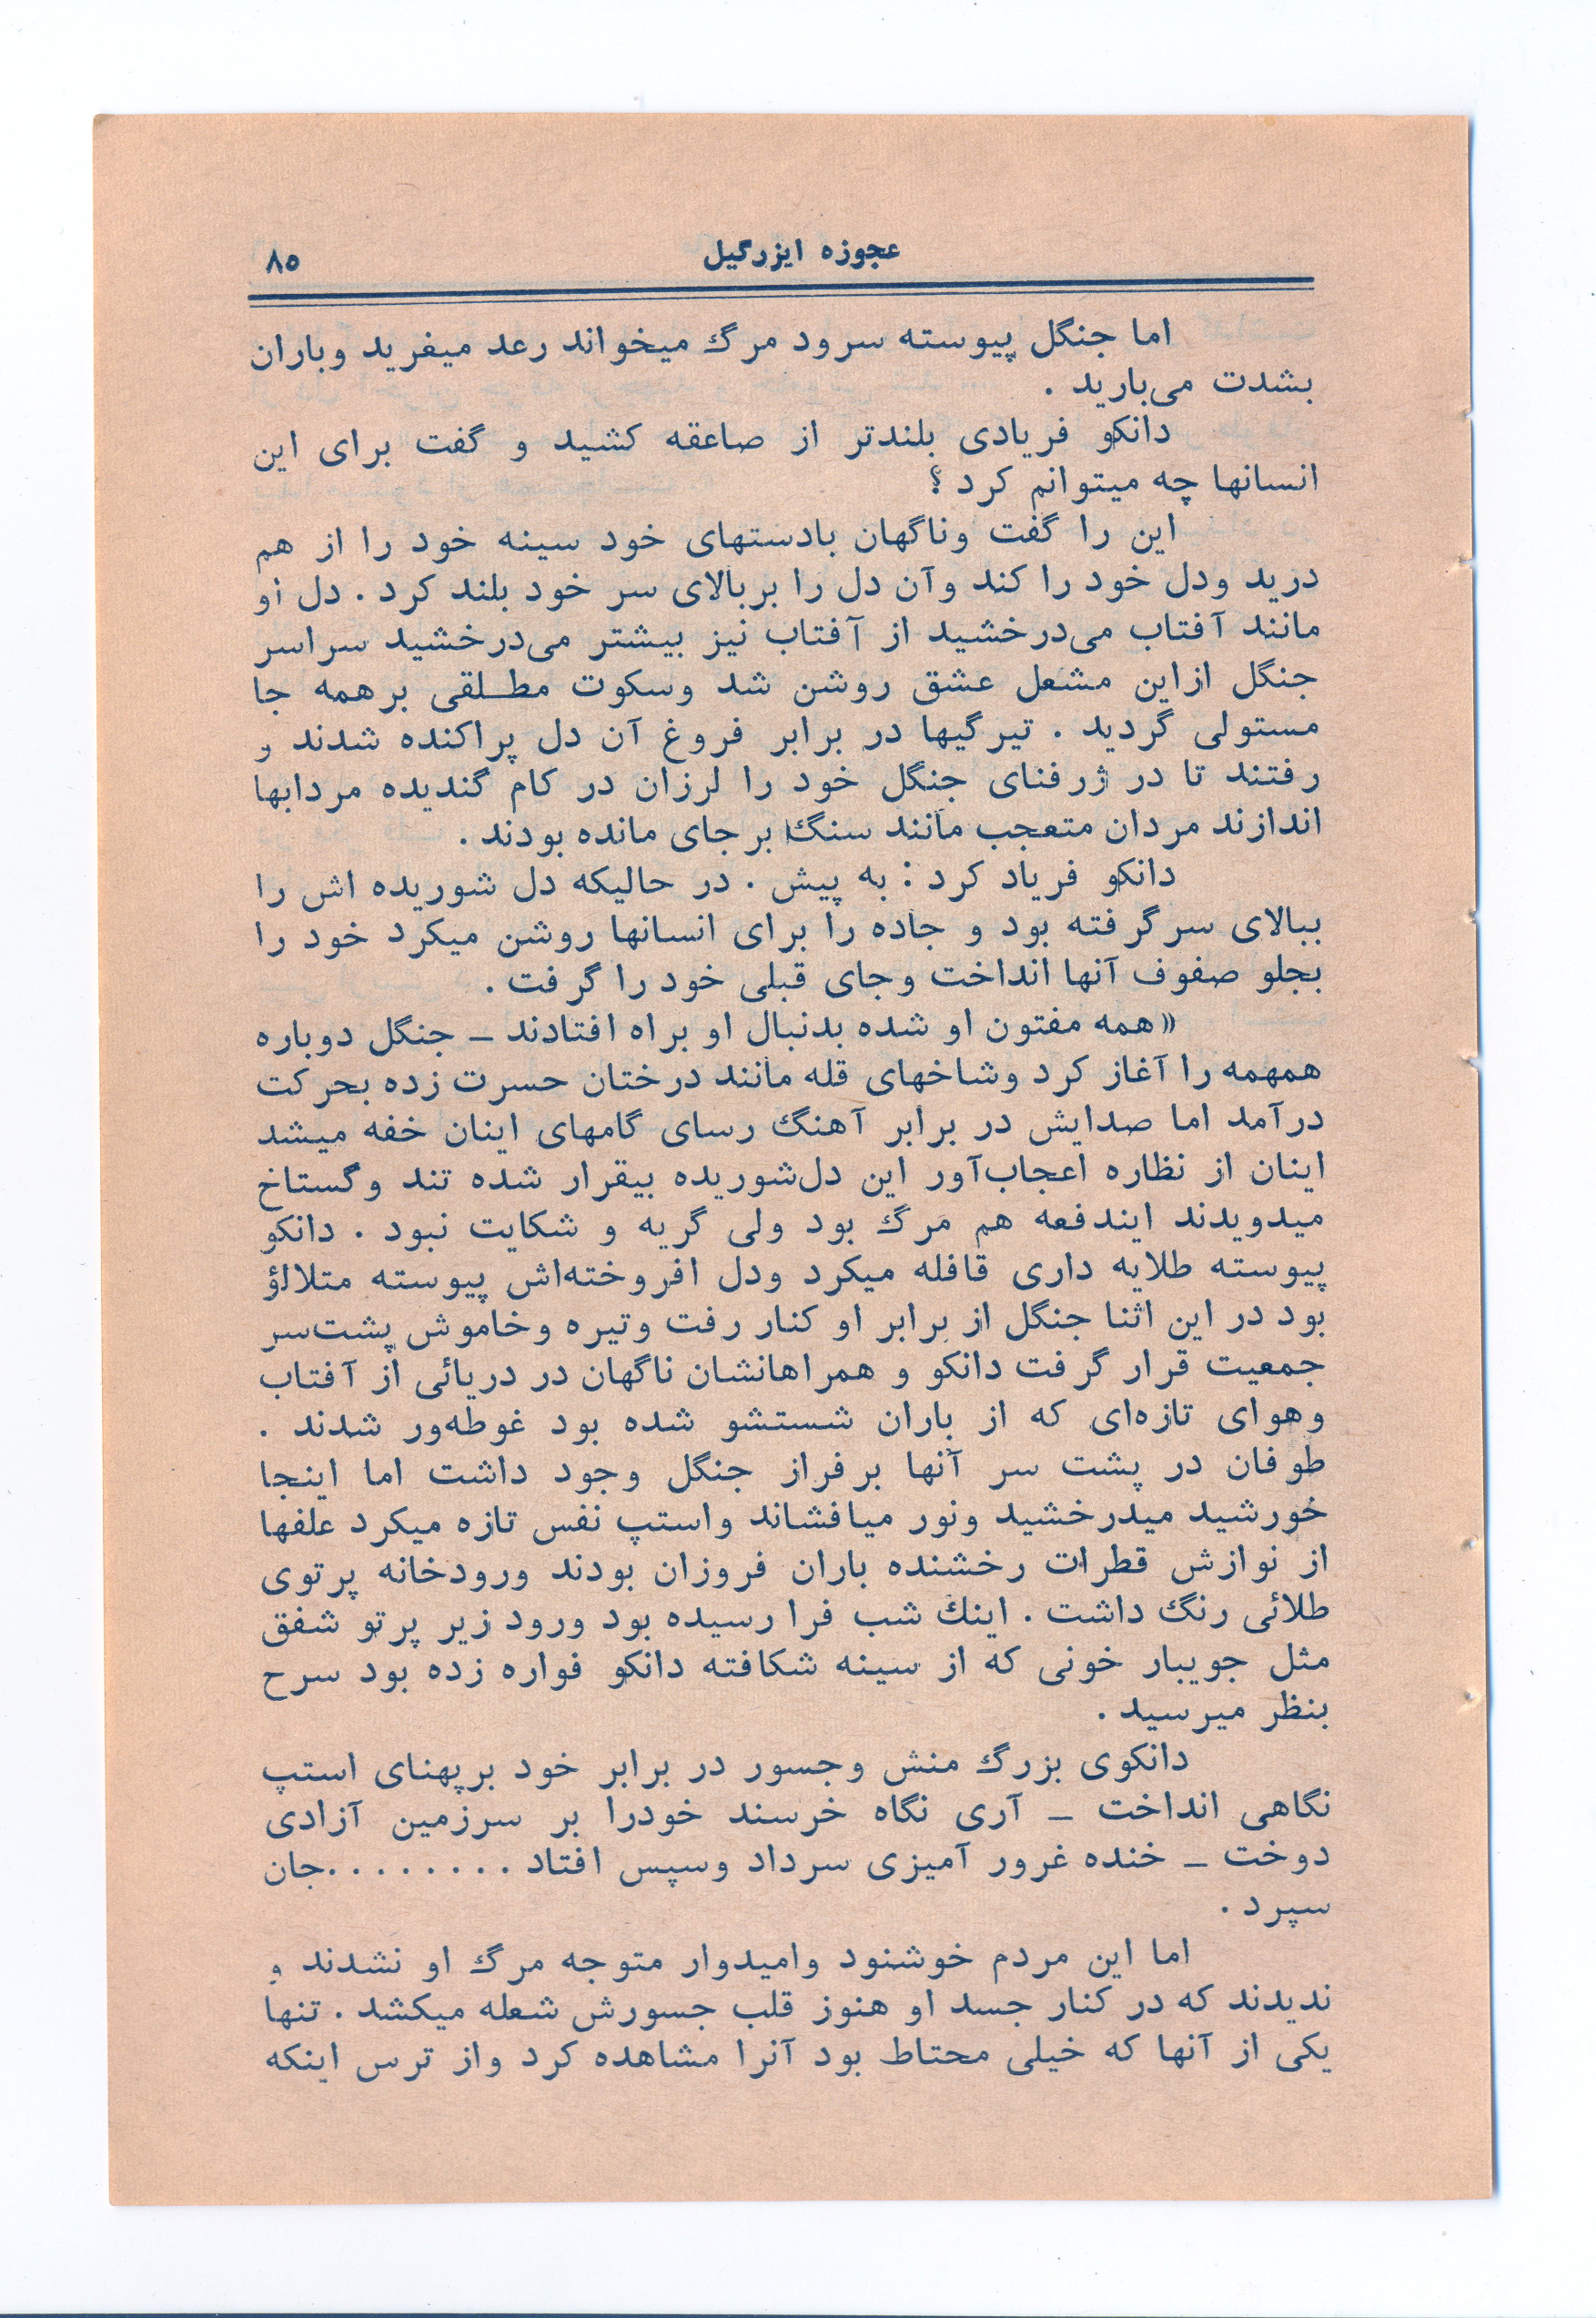 عجوزه ایزرگیل
۸۵
اما جنگل پیوسته سرود مرگ میخواند رعد میفرید وباران
بشدت می‌بارید .
دانکو فریادی بلندتر از صاعقه کشید و گفت برای این
انسانها چه میتوانم کرد ؟
این را گفت وناگهان بادستهای خود سینه خود را از هم
درید ودل خود را کند وآن دل را بربالای سر خود بلند کرد . دل او
مانند آفتاب می‌درخشید از آفتاب نیز بیشتر می‌درخشید سراسر
جنگل ازاین مشعل عشق روشن شد وسکوت مطـلقی برهمه جا
مستولی گردید . تیرگیها در برابر فروغ آن دل پراکنده شدند و
رفتند تا در ژرفنای جنگل خود را لرزان در کام گندیده مردابها
اندازند مردان متعجب مانند سنگ برجای مانده بودند .
دانکو فریاد کرد : به پیش . در حالیکه دل شوریده اش را
ببالای سرگرفته بود و جاده را برای انسانها روشن میکرد خود را
بجلو صفوف آنها انداخت وجای قبلی خود را گرفت .
«همه مفتون او شده بدنبال او براه افتادند ـ جنگل دوباره
همهمه را آغاز کرد وشاخهای قله مانند درختان حسرت زده بحرکت
درآمد اما صدایش در برابر آهنگ رسای گامهای اینان خفه میشد
اینان از نظاره اعجاب‌آور این دل‌شوریده بیقرار شده تند وگستاخ
میدویدند ایندفعه هم مرگ بود ولی گریه و شکایت نبود . دانکو
پیوسته طلایه داری قافله میکرد ودل افروخته‌اش پیوسته متلالؤ
بود در این اثنا جنگل از برابر او کنار رفت وتیره وخاموش پشت‌سر
جمعیت قرار گرفت دانکو و همراهانشان ناگهان در دریائی از آفتاب
وهوای تازه‌ای که از باران شستشو شده بود غوطه‌ور شدند .
طوفان در پشت سر آنها برفراز جنگل وجود داشت اما اینجا
خورشید میدرخشید ونور میافشاند واستپ نفس تازه میکرد علفها
از نوازش قطرات رخشنده باران فروزان بودند ورودخانه پرتوی
طلائی رنگ داشت . اینك شب فرا رسیده بود ورود زیر پرتو شفق
مثل جویبار خونی که از سینه شکافته دانکو فواره زده بود سرح
بنظر میرسید .
دانکوی بزرگ منش وجسور در برابر خود برپهنای استپ
نگاهی انداخت ـ آری نگاه خرسند خودرا بر سرزمین آزادی
دوخت ـ خنده غرور آمیزی سرداد وسپس افتاد . . . . . . . .جان
سپرد .
اما این مردم خوشنود وامیدوار متوجه مرگ او نشدند و
ندیدند که در کنار جسد او هنوز قلب جسورش شعله میکشد . تنها
یکی از آنها که خیلی محتاط بود آنرا مشاهده کرد واز ترس اینکه